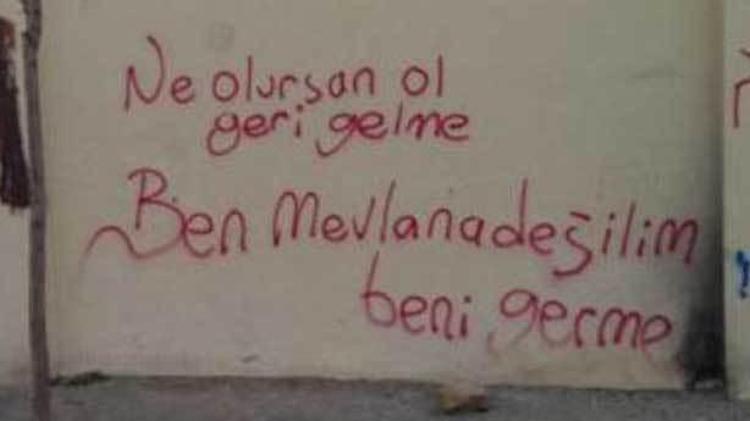 Ne olursan ol
geri gelme
Ben Mevlana değilim
beni germe